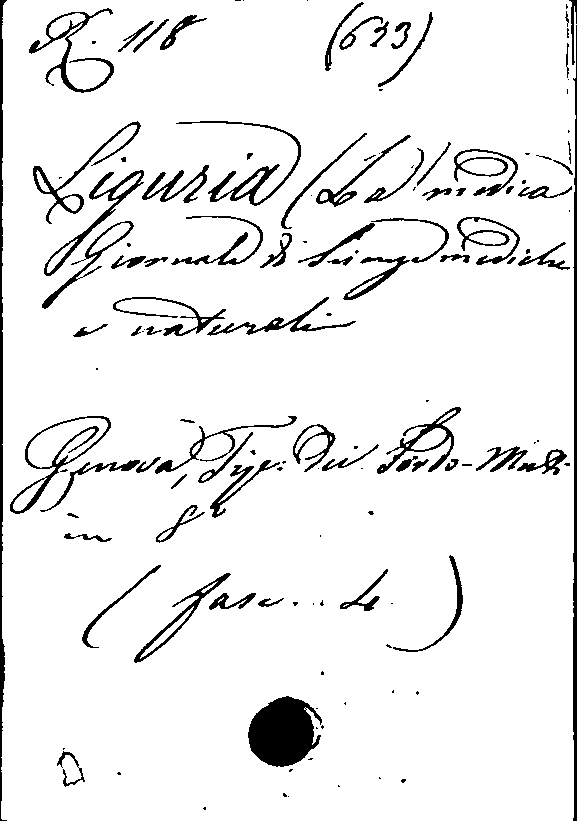 R. 118 (633)
Liguria (La) medica
Giornale di Scienze mediche
e naturali
Genova, Tip. dei Sordo-Muti
in 8º
(fasc. 4)
D